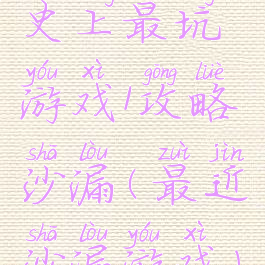 史上最坑
yóu xì gōng lüè
游戏1攻略
shā lòu zuì jìn
沙漏(最近
shā lòu yóu xì
沙漏游戏)